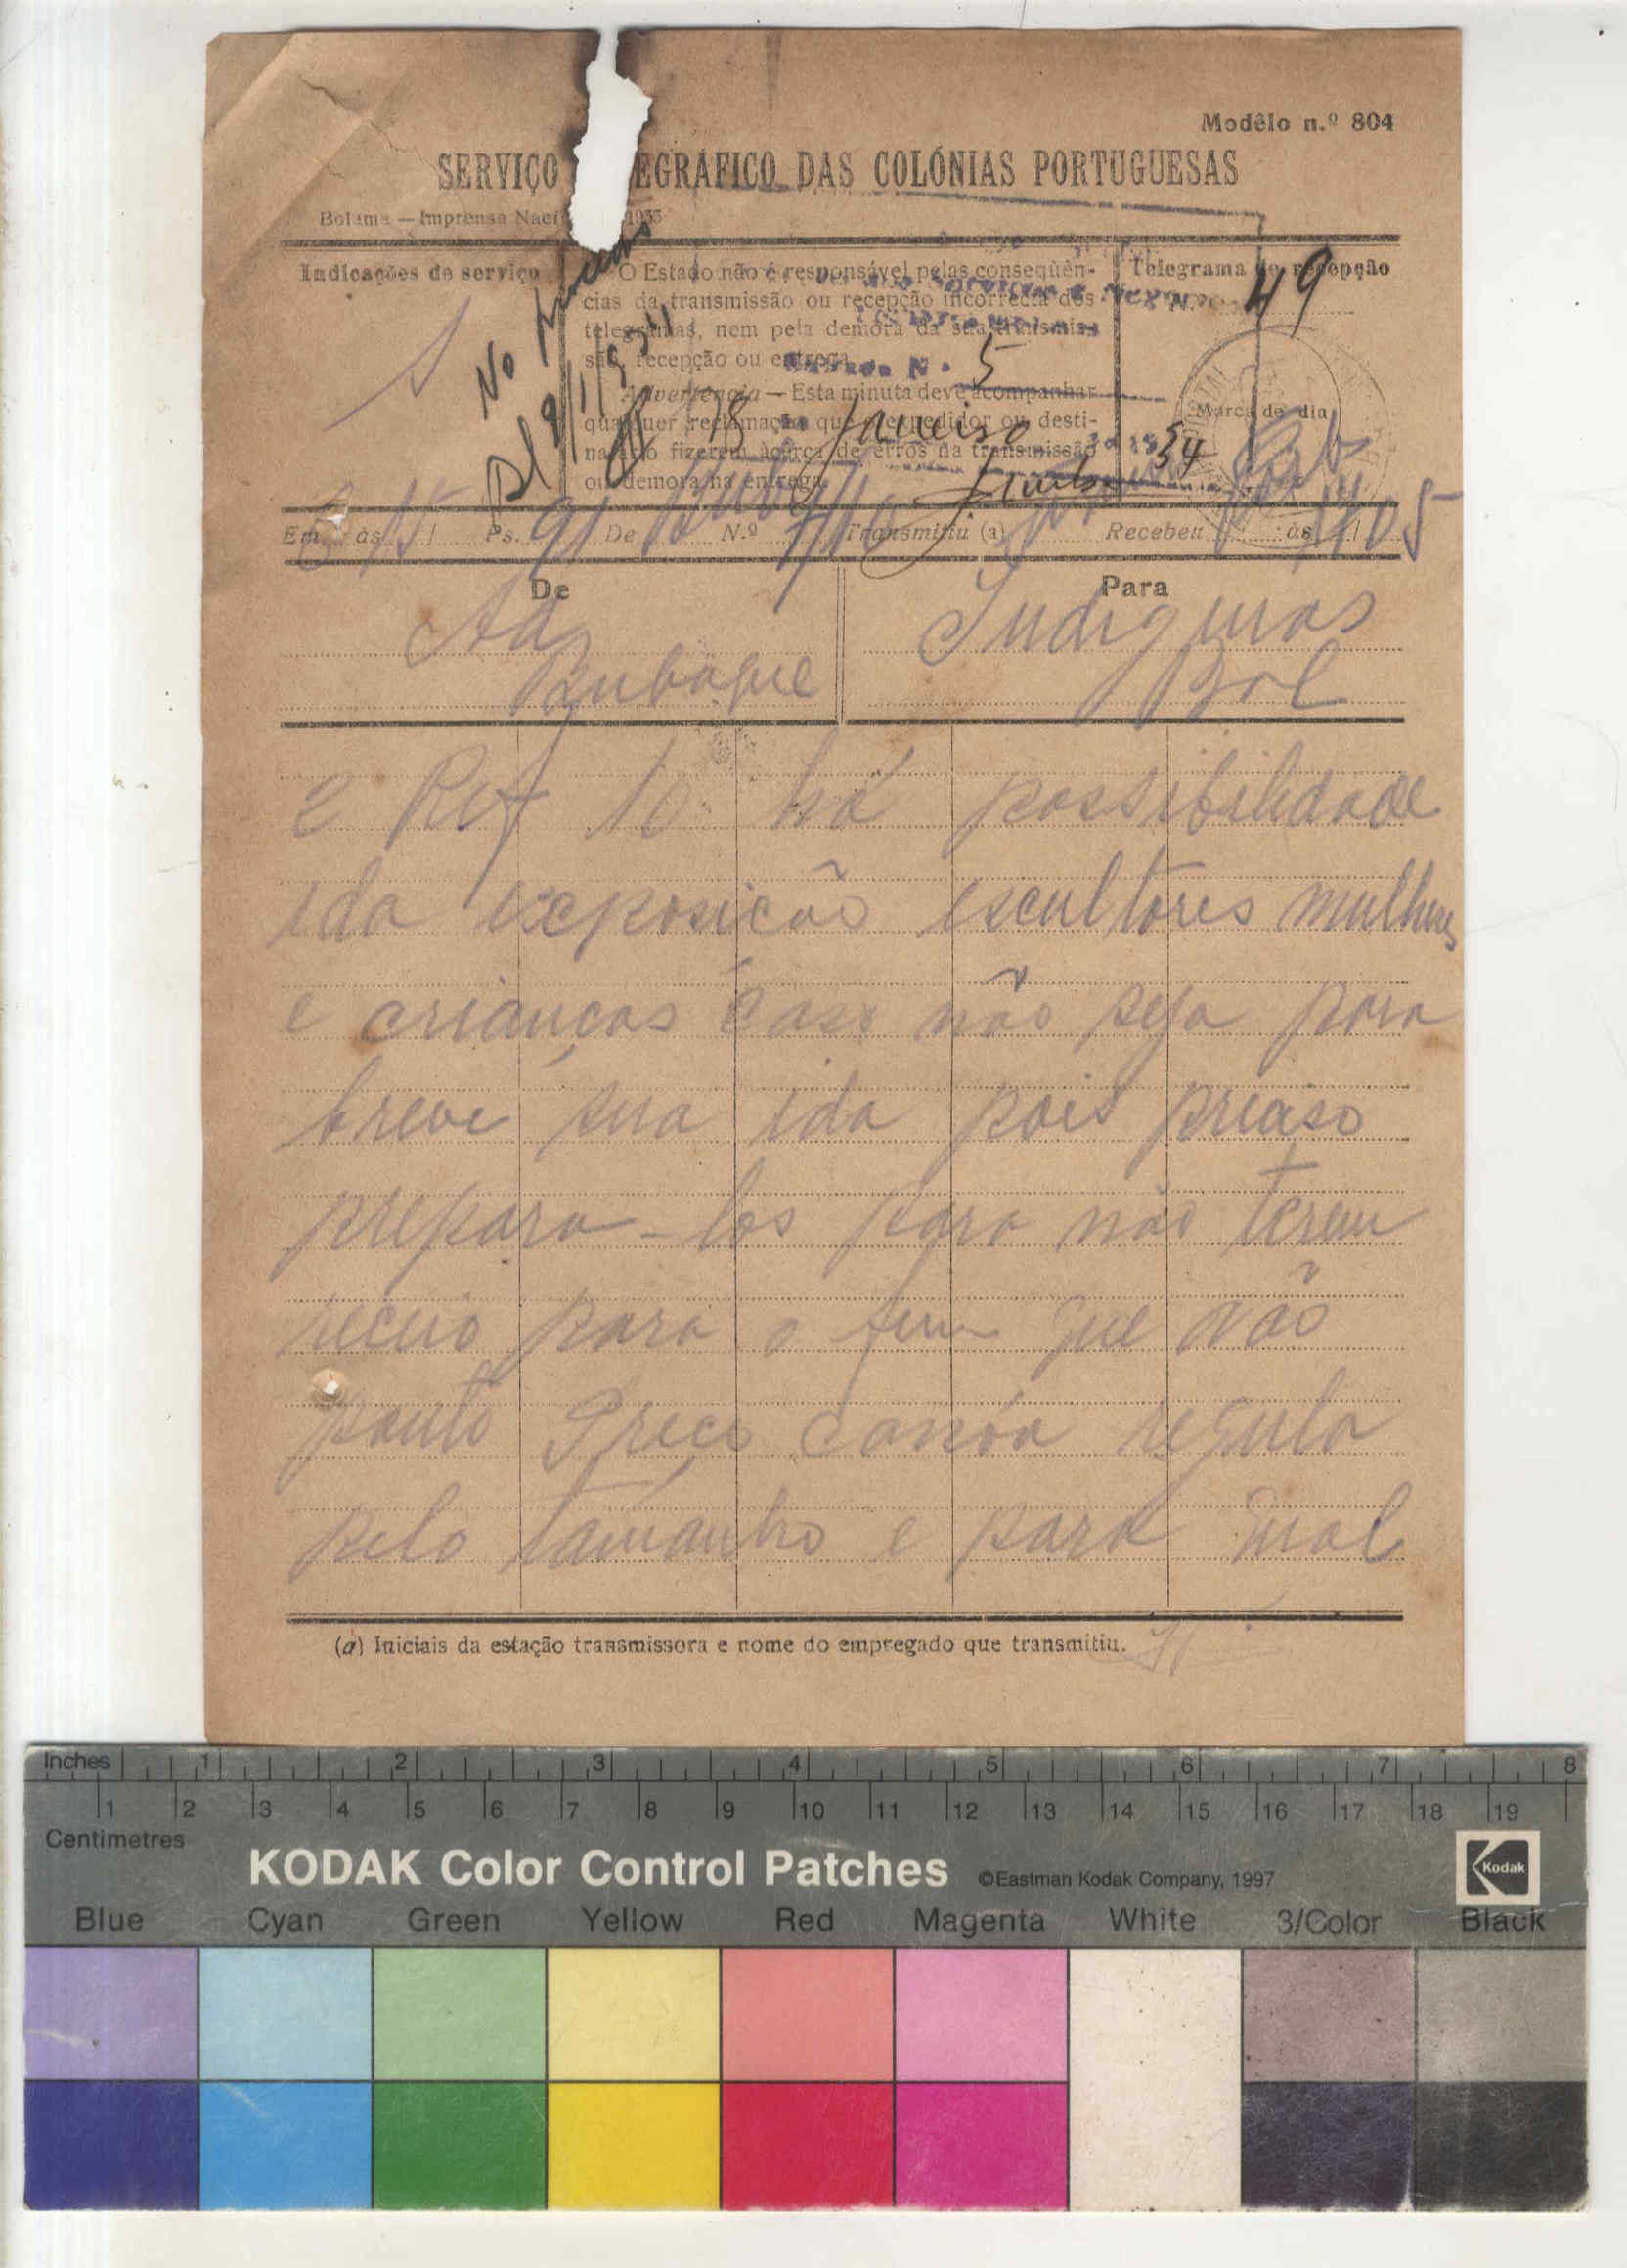 Modêlo n.º 804
SERVIÇO EGRÁFICO DAS COLÓNIAS PORTUGUESAS
Bolama — Imprensa Naci 1933
Indicações de serviço
O Estado não é responsável pelas conseqüên-
cias da transmissão ou recepção incorrecta dos
telegramas, nem pela demora da sua transmis-
são, recepção ou entrega.
Advertência — Esta minuta deve acompanhar
qualquer reclamação que o expedidor ou desti-
natário fizerem àcêrca de erros na transmissão
ou demora na entrega.
Telegrama de recepção
N.º 49
Marca de dia
No
9/1/34
N. 5
18 Janeiro
34
Em às 15 Ps. 91 De N.º Transmitiu (a) Recebeu às 1705
De
Para
Ad
Bubaque
Indigenas
Bol
2 Ref 10 há possibilidade
ida exposição escultores mulheres
e crianças caso não seja para
breve sua ida pois preciso
prepara-los para não terem
receio para o fim que vão
ponto Preço canôa regula
pelo tamanho e para qual
(a) Iniciais da estação transmissora e nome do empregado que transmitiu.
Inches 1 2 3 4 5 6 7 8
1 2 3 4 5 6 7 8 9 10 11 12 13 14 15 16 17 18 19
Centimetres
KODAK Color Control Patches ©Eastman Kodak Company, 1997 Kodak
Blue Cyan Green Yellow Red Magenta White 3/Color Black